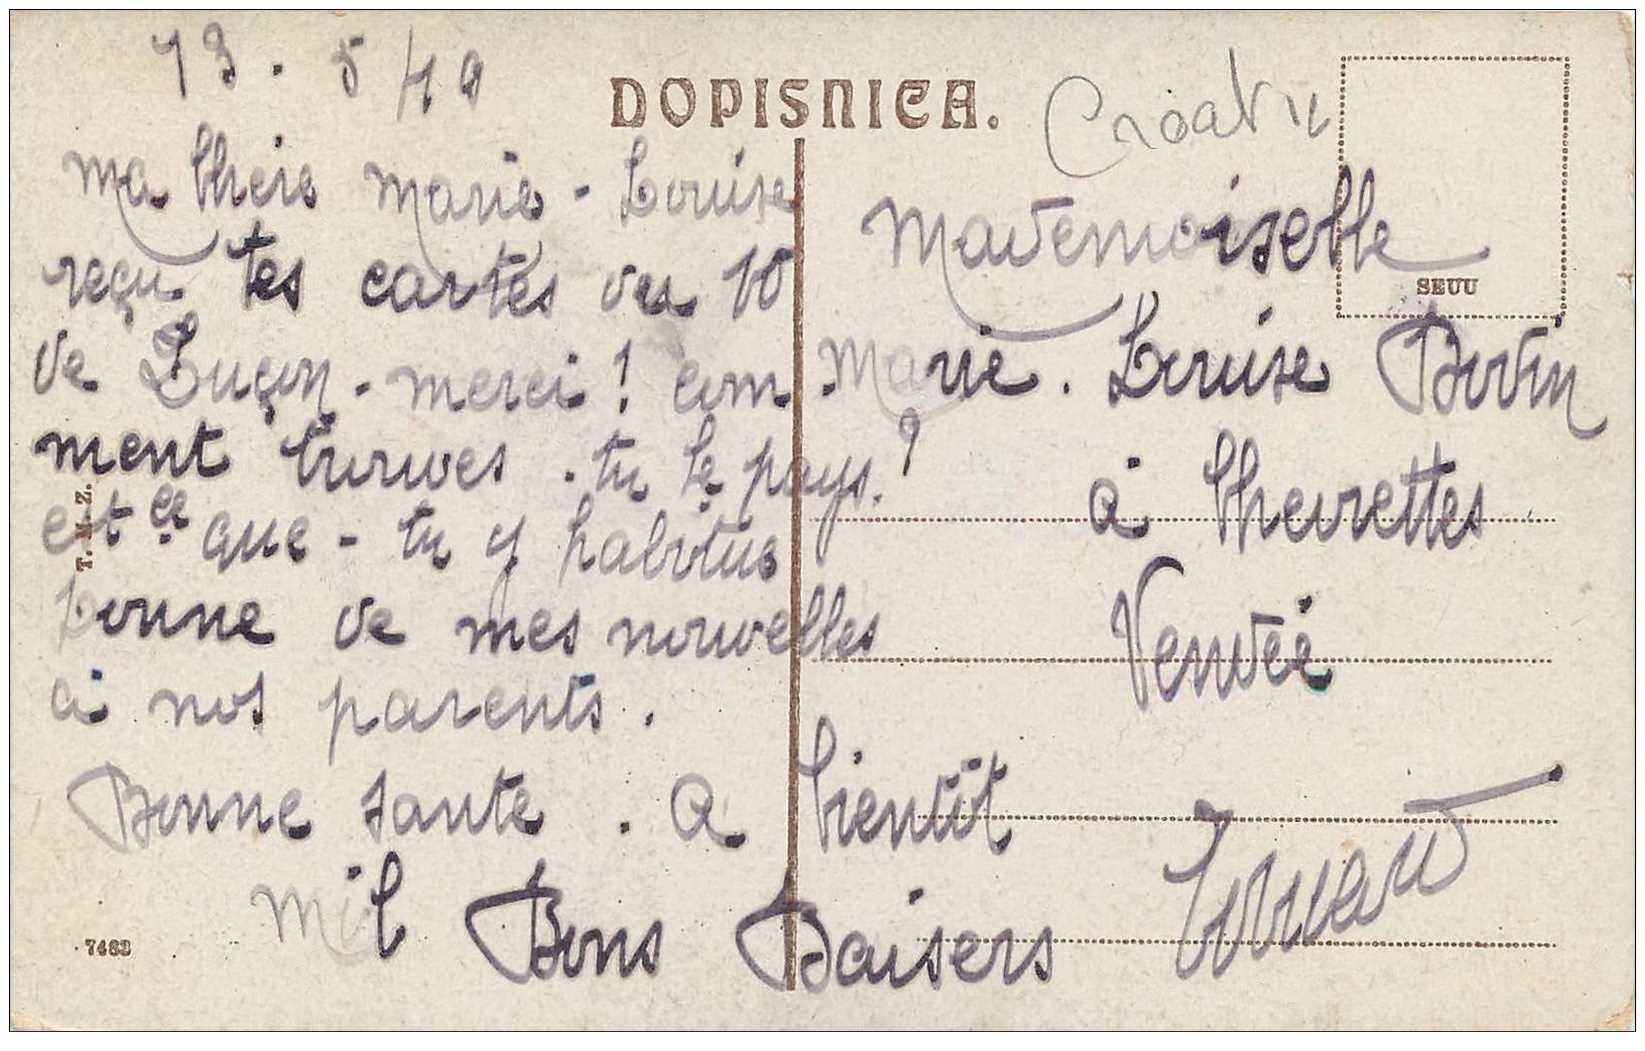 13. 5 40
DOPISNICA.
Croatie
ma chere marie-Louise
reçu tes cartes des 10
de Luçon-merci! com
ment trouves-tu le pays?
est ce que-tu y habitue
Donne de mes nouvelles
à nos parents.
Bonne sante. A bientôt
mil Bons Baisers
Mademoiselle
SEUU
Marie-Louise Bodin
à Chevrettes
Vendée
T. M. Z.
7463